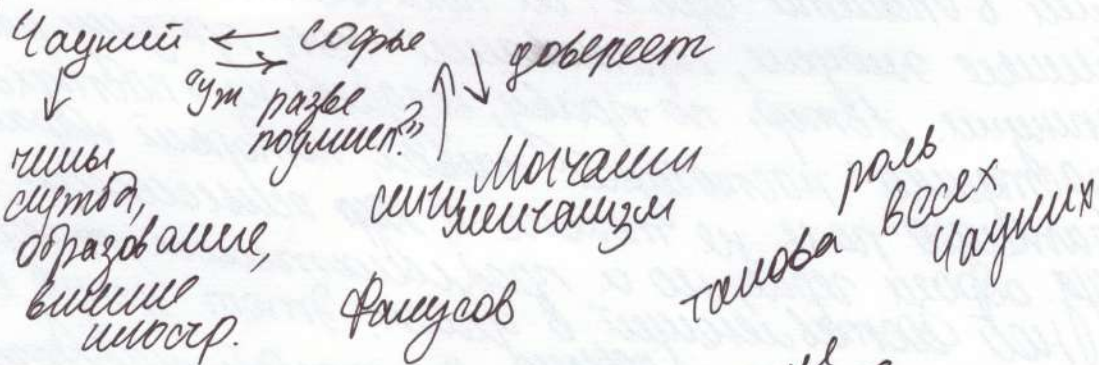 Чацкий ← Софье
→
"Уж разве
поумнел?"
доверяет
чины
служба,
образование,
влияние
иностр.
Молчалин
сентиментализм
Фамусов
такова роль
всех
Чацких